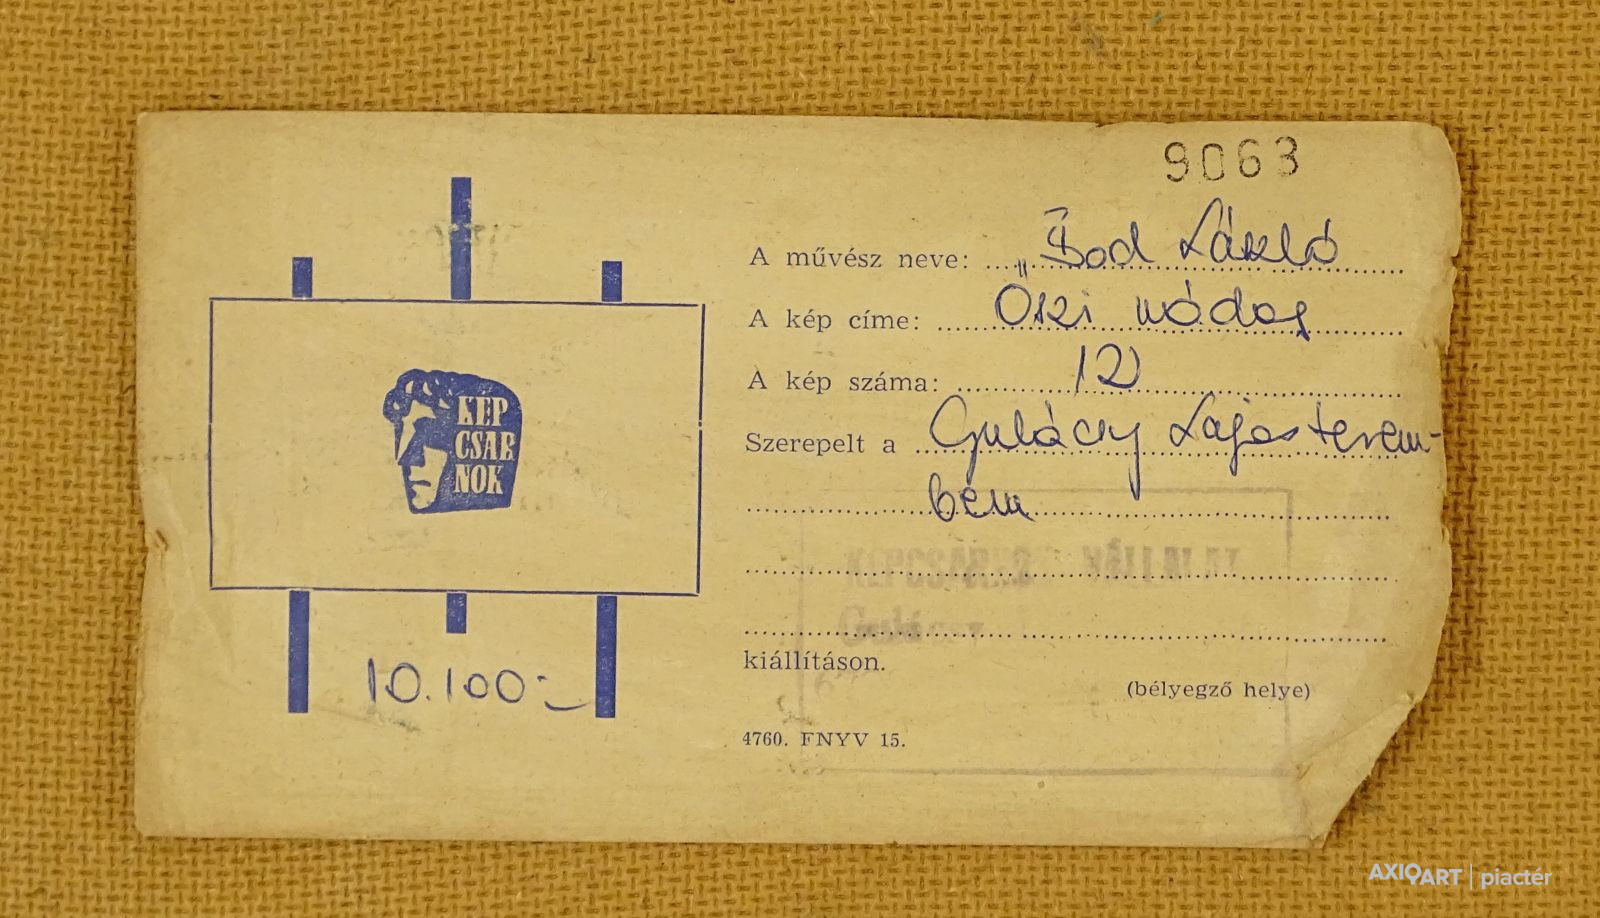 9063
A művész neve: Bod László
A kép címe: Őszi nádas
A kép száma: 12
Szerepelt a Gulácsy Lajos terem-
ben
KÉP
CSAR
NOK
KÉPCSARNOK VÁLLALAT
Gulácsy
kiállításon.
(bélyegző helye)
10.100.-
4760. FNYV 15.
AXIOART | piactér